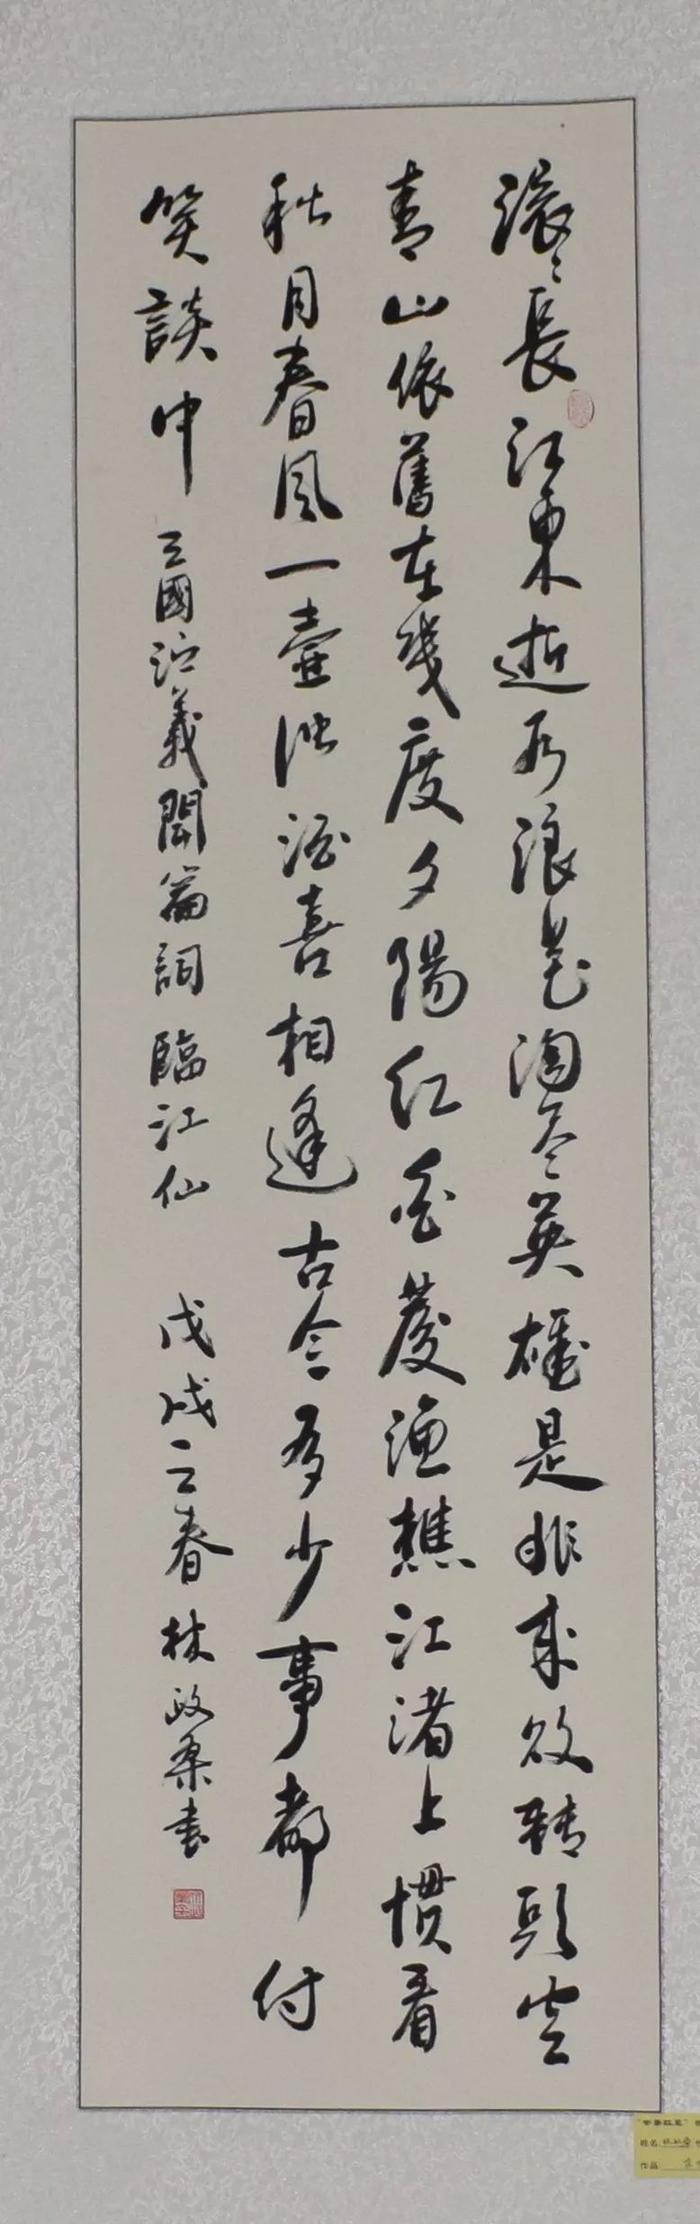 滚〻長江東逝水浪花淘尽英雄是非成敗轉頭空
青山依舊在幾度夕陽紅白髮漁樵江渚上慣看
秋月春風一壺濁酒喜相逢古今多少事都付
笑談中 三國演義開篇詞 臨江仙 戊戌之春 林政書
姓名
作品